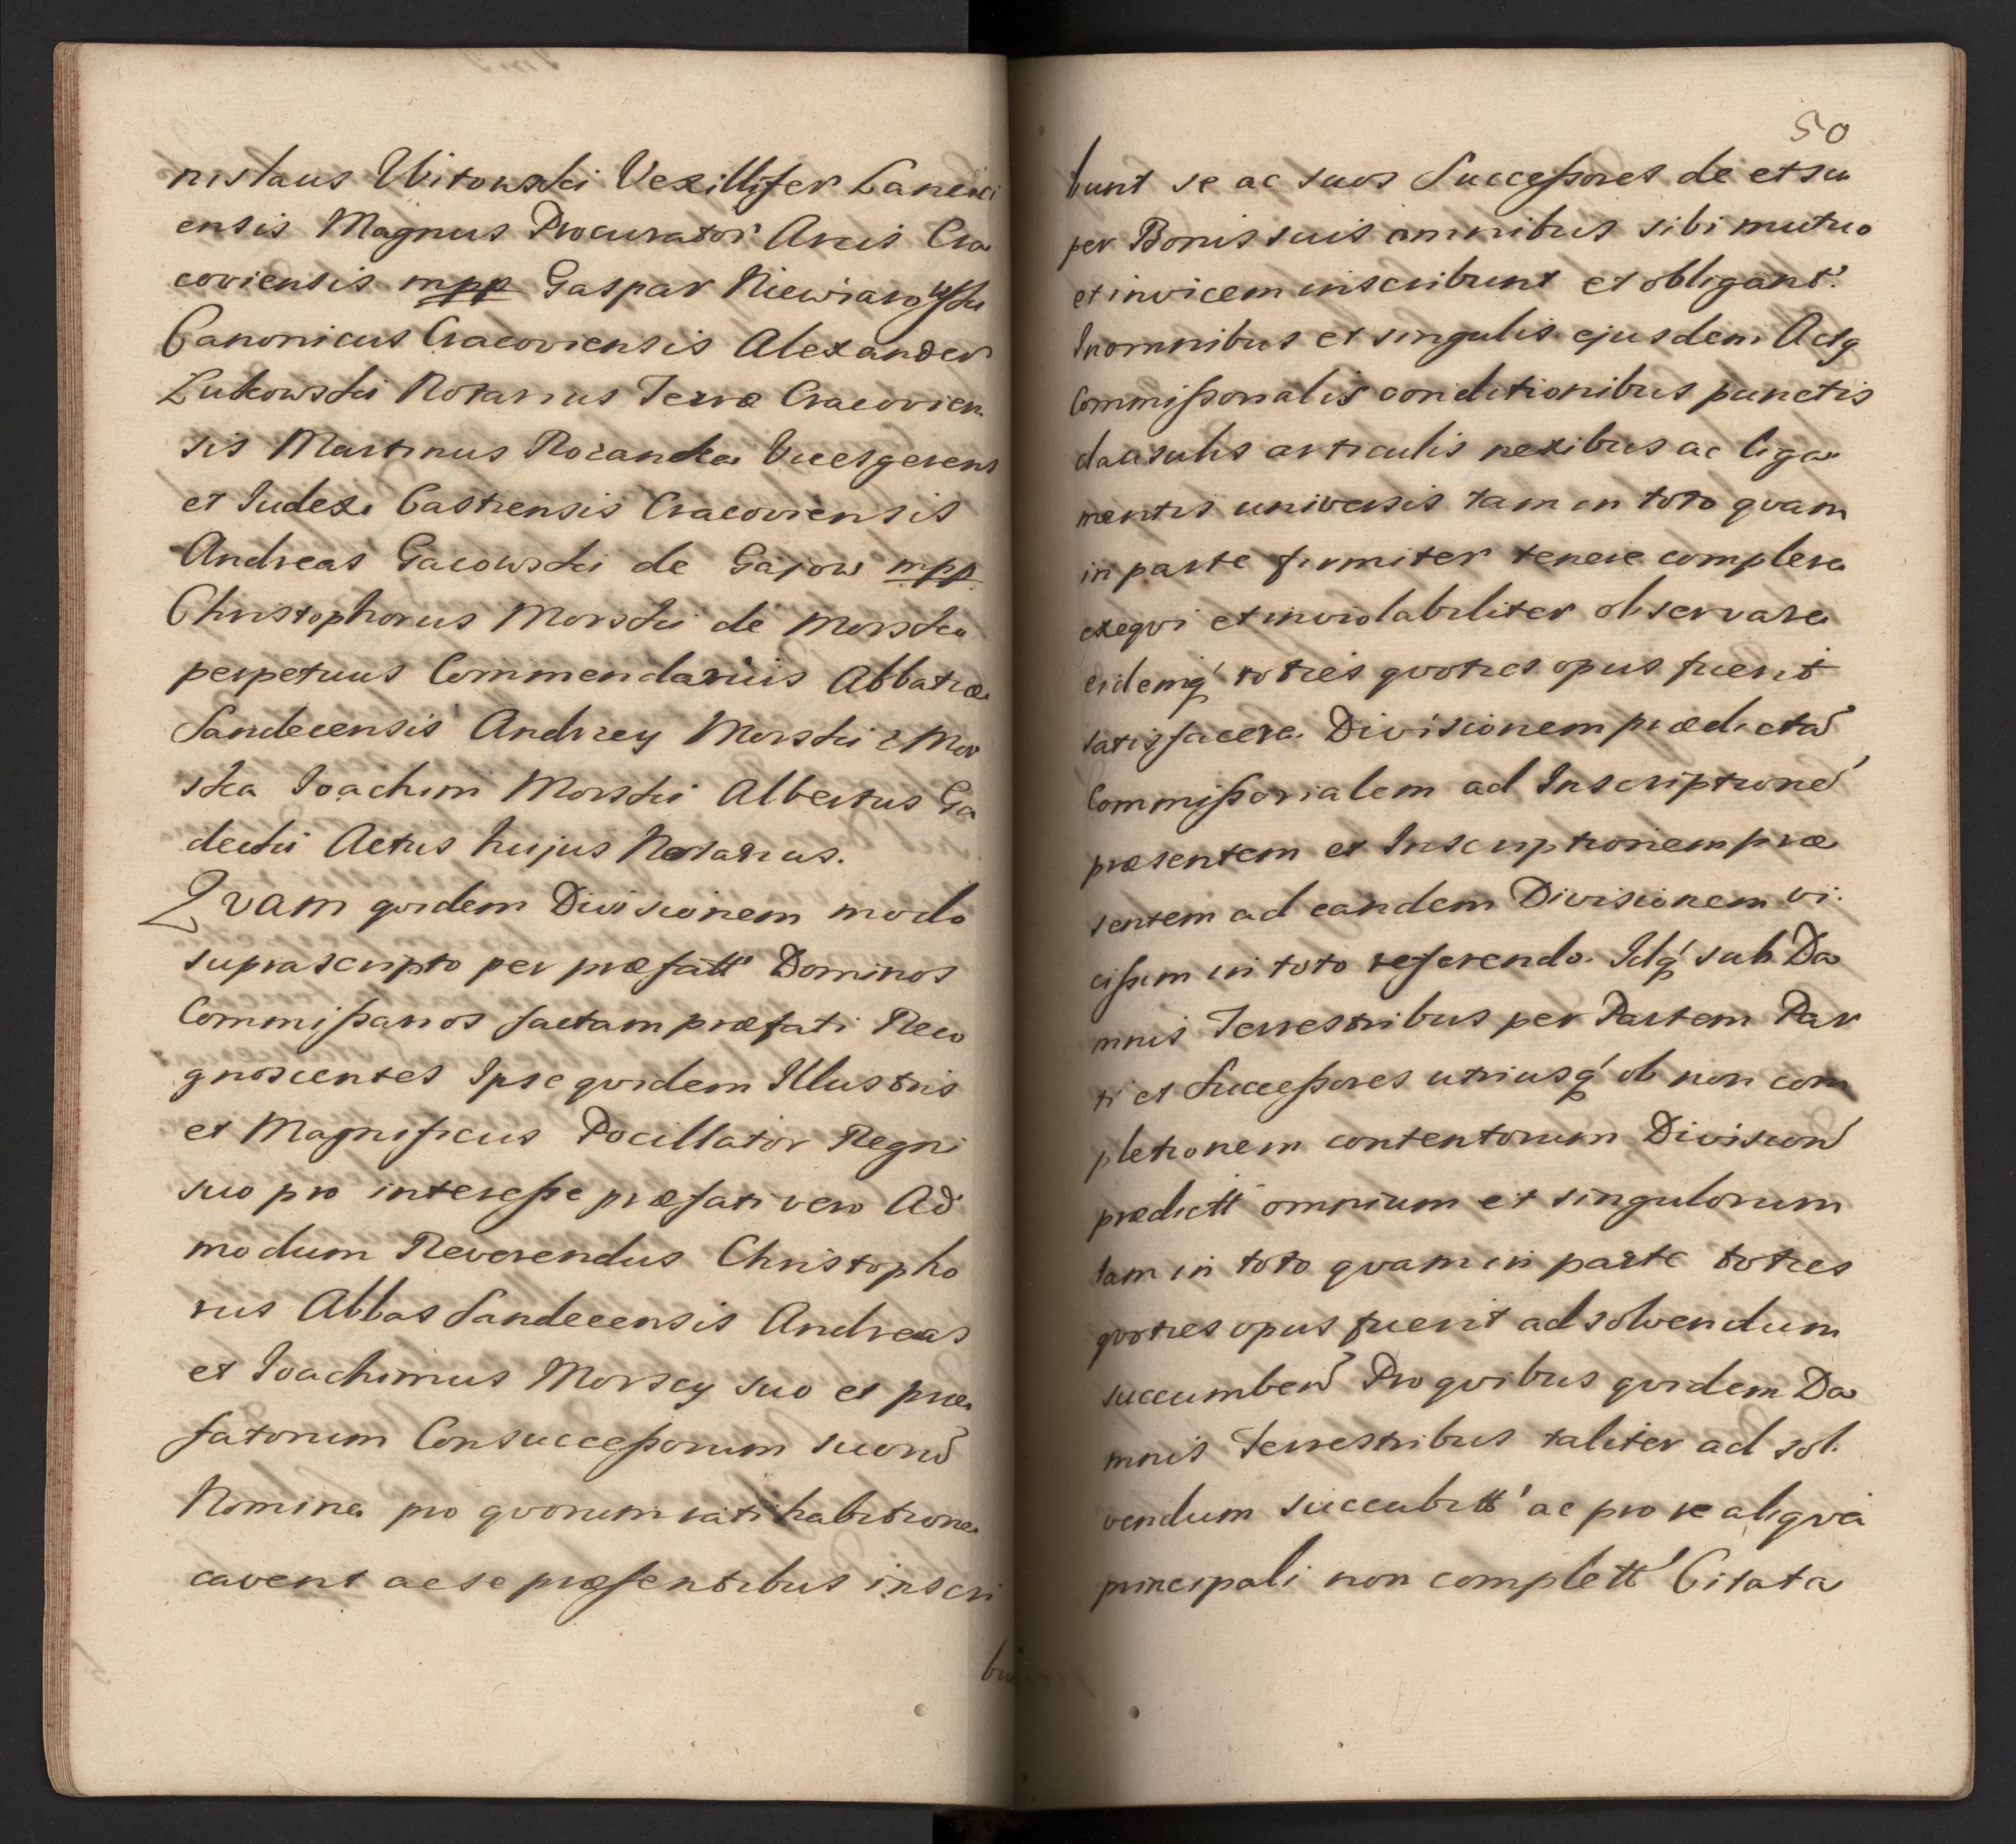 nistaus Witowski Vexillifer Lancici
ensis Magnus Procurator Arcis Cra
coviensis mpp Gaspar Niewiarowski
Canonicus Cracoviensis Alexander
Lukowski Notarius Terræ Cracovien
sis Martinus Rozanka Vicesgerens
et Iudex Castrensis Cracoviensis
Andreas Gacowski de Gajow mpp
Christophorus Morski de Morska
perpetuus Commendarius Abbatiæ
Sandecensis Andrzey Morski z Mor
ska Ioachim Morski Albertus Ga
decki Actus hujus Notarius.
Qvam qvidem Divisionem modo
suprascripto per præfatt Dominos
Commißarios factam præfati Reco
gnoscentes Ipse qvidem Illustris
et Magnificus Pocillator Regni
suo pro intereße præfati vero Ad
modum Reverendus Christopho
rus Abbas Sandecensis Andreas
et Ioachimus Morscy suo et præ
fatorum Consucceßorum suorū
Nomine pro qvorum ratihabitione
cavent ac se præsentibus inscri
bu
50
bunt se ac suos Succeßores de et su
per Bonis suis omnibus sibi mutuo
et invicem inscribunt et obligant.
In omnibus et singulis ejusdem Actq
Commißorialis conditionibus punctis
clausulis articulis nexibus ac liga
mentis universis tam in toto qvam
in parte firmiter tenere complere
exeqvi et inviolabiliter observare
eidemq́ toties qvoties opus fuerit
satisfacere. Divisionem prædictā
Commißorialem ad Inscriptionē
præsentem et Inscriptionem præ
sentem ad eandem Divisionem vi.
cißim in toto referendo. Idq́ sub Da
mnis Terrestribus per Partem Par
ti et Succeßores utriusq́ ob non com
pletionem contentorum Division
prædictt omnium et singulorum
tam in toto qvam in parte toties
qvoties opus fuerit ad solvendum
succumben Pro qvibus qvidem Da
mnis Terrestribus taliter ad sol.
vendum succubitt ac pro re aliqva
principali non complett Citata